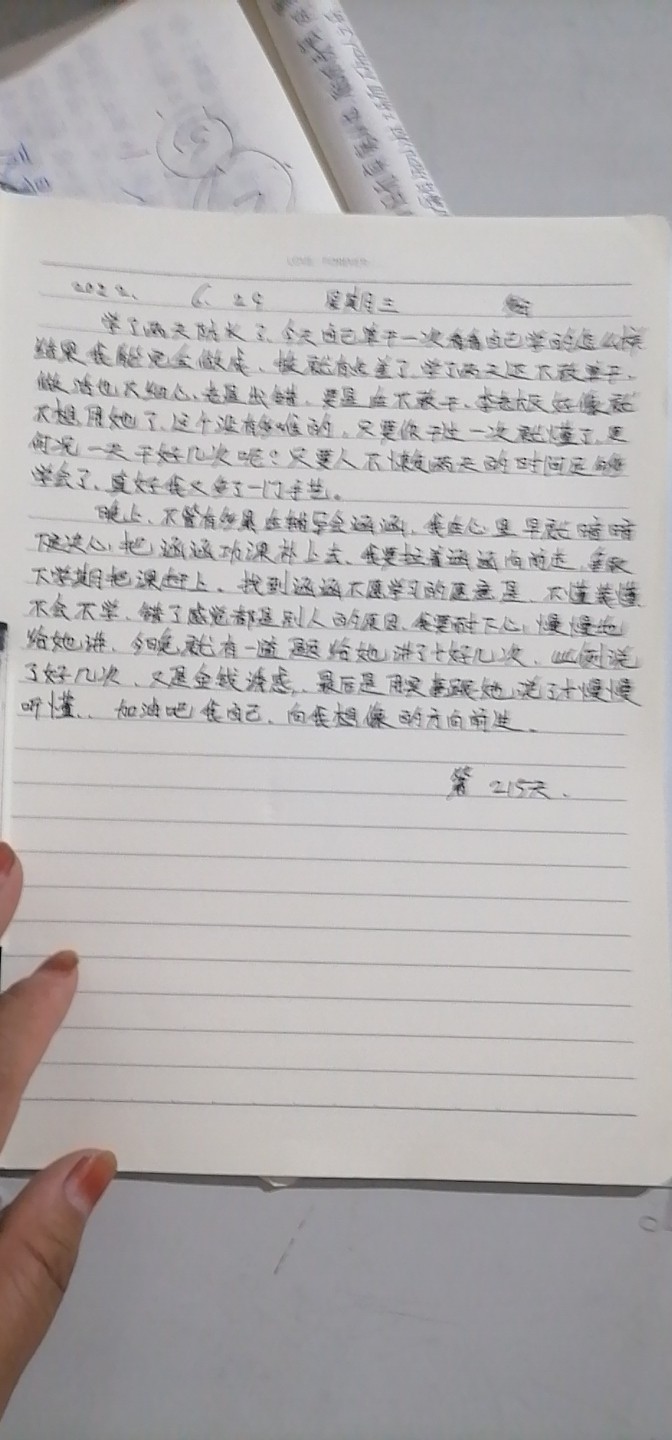 LOVE FOREVER
2022. 6. 29 星期三
学了两天 长了, 今天自己单干一次看看自己学的怎么样
结果我能完全做成、 就有点差了, 学了两天还不敢单干,
做活也不细心, 老是出错, 要是 不敢干, 李老板好像就
不想用她了, 这个没有多难的, 只要你干过一次就懂了, 更
何况一天干好几次呢? 只要人不 两天的时间足够
学会了、真好我又多了一门手艺。
晚上、不管有多累 辅导 涵涵, 我在心里早就暗暗
下决心, 把涵涵功课补上去、我要拉着涵涵向前走,
下学期把课赶上、找到涵涵不愿学习的 是, 不懂装懂
不会不学、错了感觉都是别人的原因, 我要耐下心, 慢慢地
给她讲、今晚就有一道题给她讲了十好几次、 说
了好几次、又是金钱诱惑, 最后是用 跟她说了才慢慢
听懂、加油吧我自己、向我想像的方向前进、
第 215天、